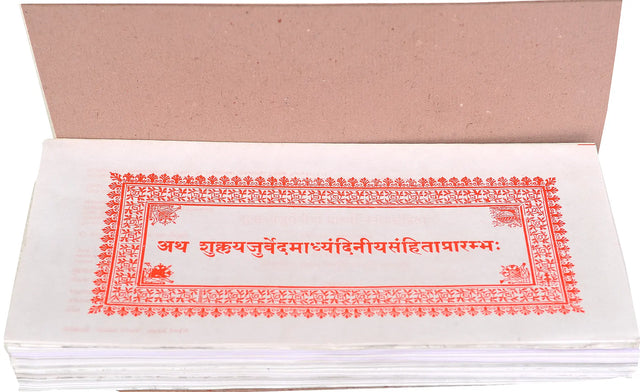 अथ शुक्लयजुर्वेदमाध्यंदिनीयसंहिताप्रारम्भः